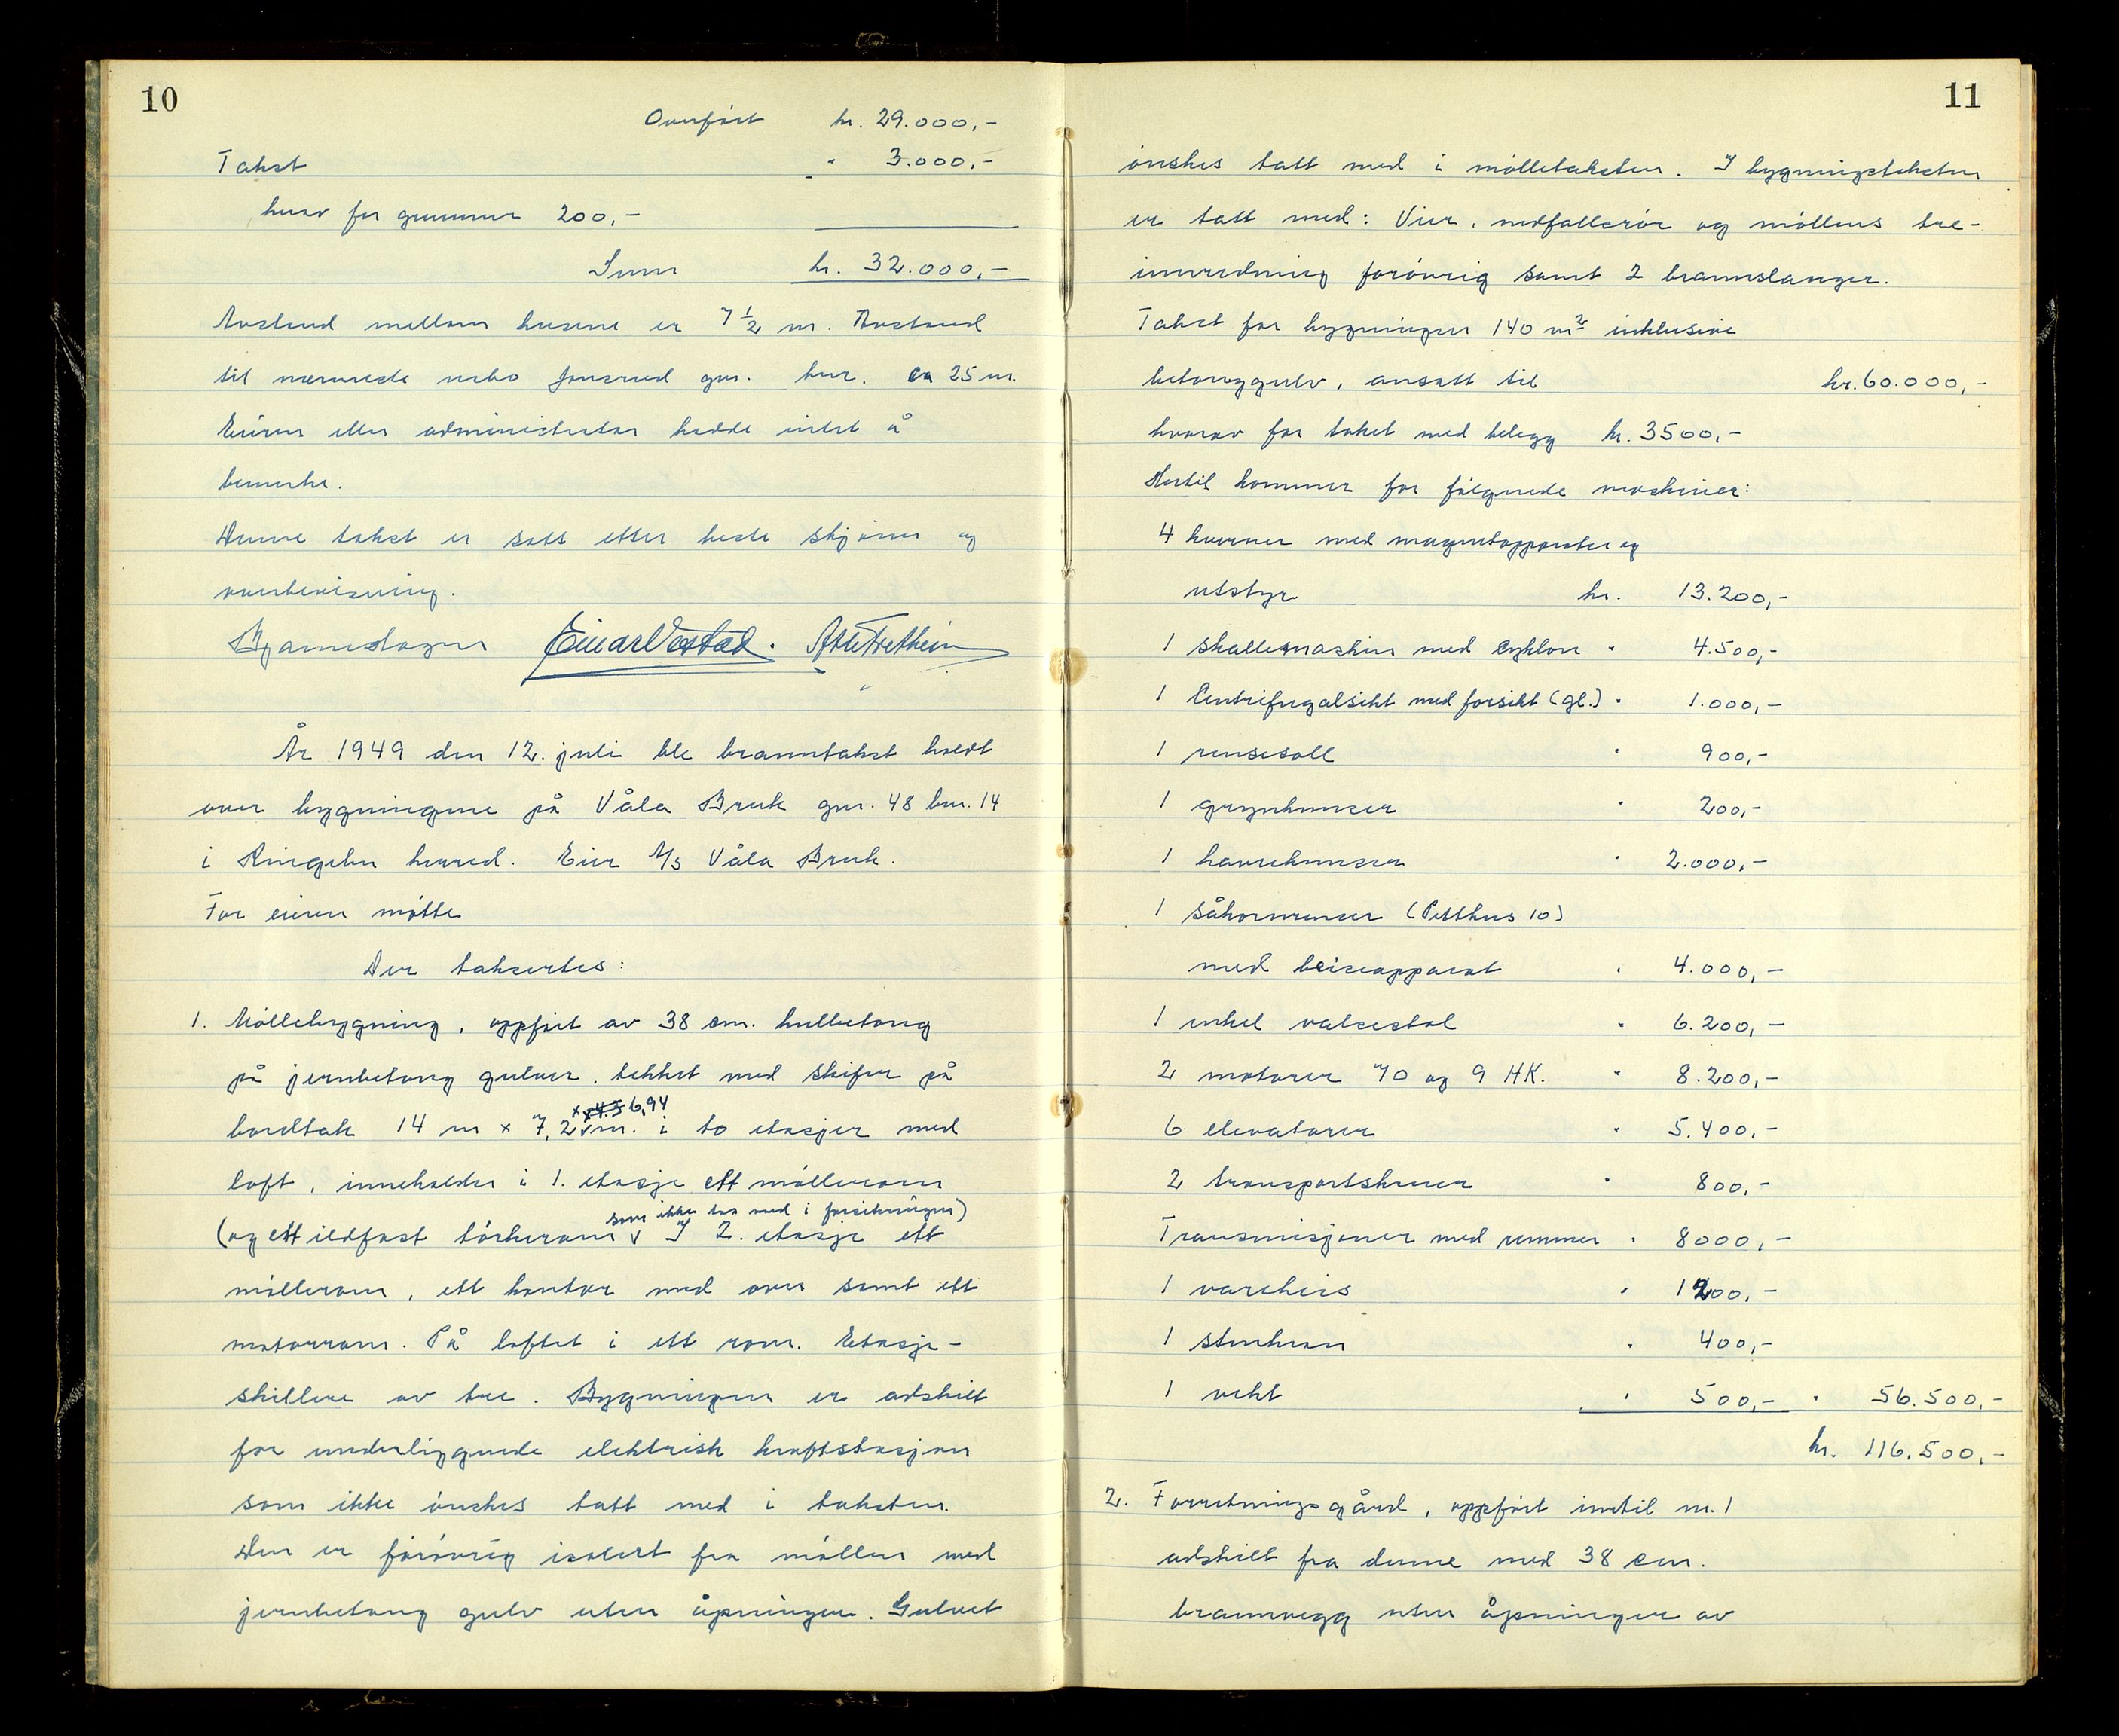 10
Overført kr. 29.000,-
Takst " 3.000,-
herav for grunnmur 200,-
Sum kr. 32.000,-
Avstand mellom husene er 7 1/2 m. Avstand
til nærmeste nabo gnr. bnr. ca 25 m.
Eieren eller administrator hadde intet å
bemerke.
Denne takst er satt etter beste skjønn og
overbevisning.
Einar Vestad.
År 1949 den 12. juli ble branntakst holdt
over bygningene på Våla Bruk gnr. 48 bnr. 14
i Ringebu herred. Eier A/S Våla Bruk.
For eieren møtte
Der taksertes:
1. Möllebygning, oppført av 38 cm. hulbetong
på jernbetong gulver, tekket med skifer på
x 6,94
bordtak 14 m x 7,2 m. i to etasjer med
loft, inneholder i 1. etasje ett möllerom
som ikke tas med i forsikringen)
(og ett ildfast tørkerom v I 2. etasje ett
möllerom, ett kontor med ovn samt ett
motorrom. På loftet i ett rom. Etasje-
skillene av tre. Bygningen er adskilt
for underliggende elektrisk kraftstasjon
som ikke ønskes tatt med i taksten.
Den er førøvrig isolert fra möllen med
jernbetong gulv uten åpninger. Gulvet
11
ønskes tatt med i mölletaksten. I bygningstaksten
er tatt med: Vier, nedfallsrör og möllens tre-
innredning forøvrig samt 2 brannslanger.
Takst for bygningen 140 m² inklusive
betonggulv, ansatt til kr. 60.000,-
hvorav for taket med belegg kr. 3500,-
Hertil kommer for følgende maskiner:
4 kverner med magnetapparater og
utstyr kr. 13.200,-
1 skallemaskin med cyklon " 4.500,-
1 Centrifugalsikt med forsikt (gl.) " 1.000,-
1 rensesoll " 900,-
1 grynrenser " 200,-
1 havrerenser " 2.000,-
1 såkornrenser (Petkus 10)
med beiseapparat " 4.000,-
1 enkel valsestol " 6.200,-
2 motorer 70 og 9 HK. " 8.200,-
6 elevatorer " 5.400,-
2 transportskruer " 800,-
Transmisjoner med remmer " 8000,-
1 vareheis " 1200,-
1 stenkran " 400,-
1 vekt " 500,- " 56.500,-
kr. 116.500,-
2. Forretningsgård, oppført inntil nr. 1
adskilt fra denne med 38 cm.
brannvegg uten åpninger av